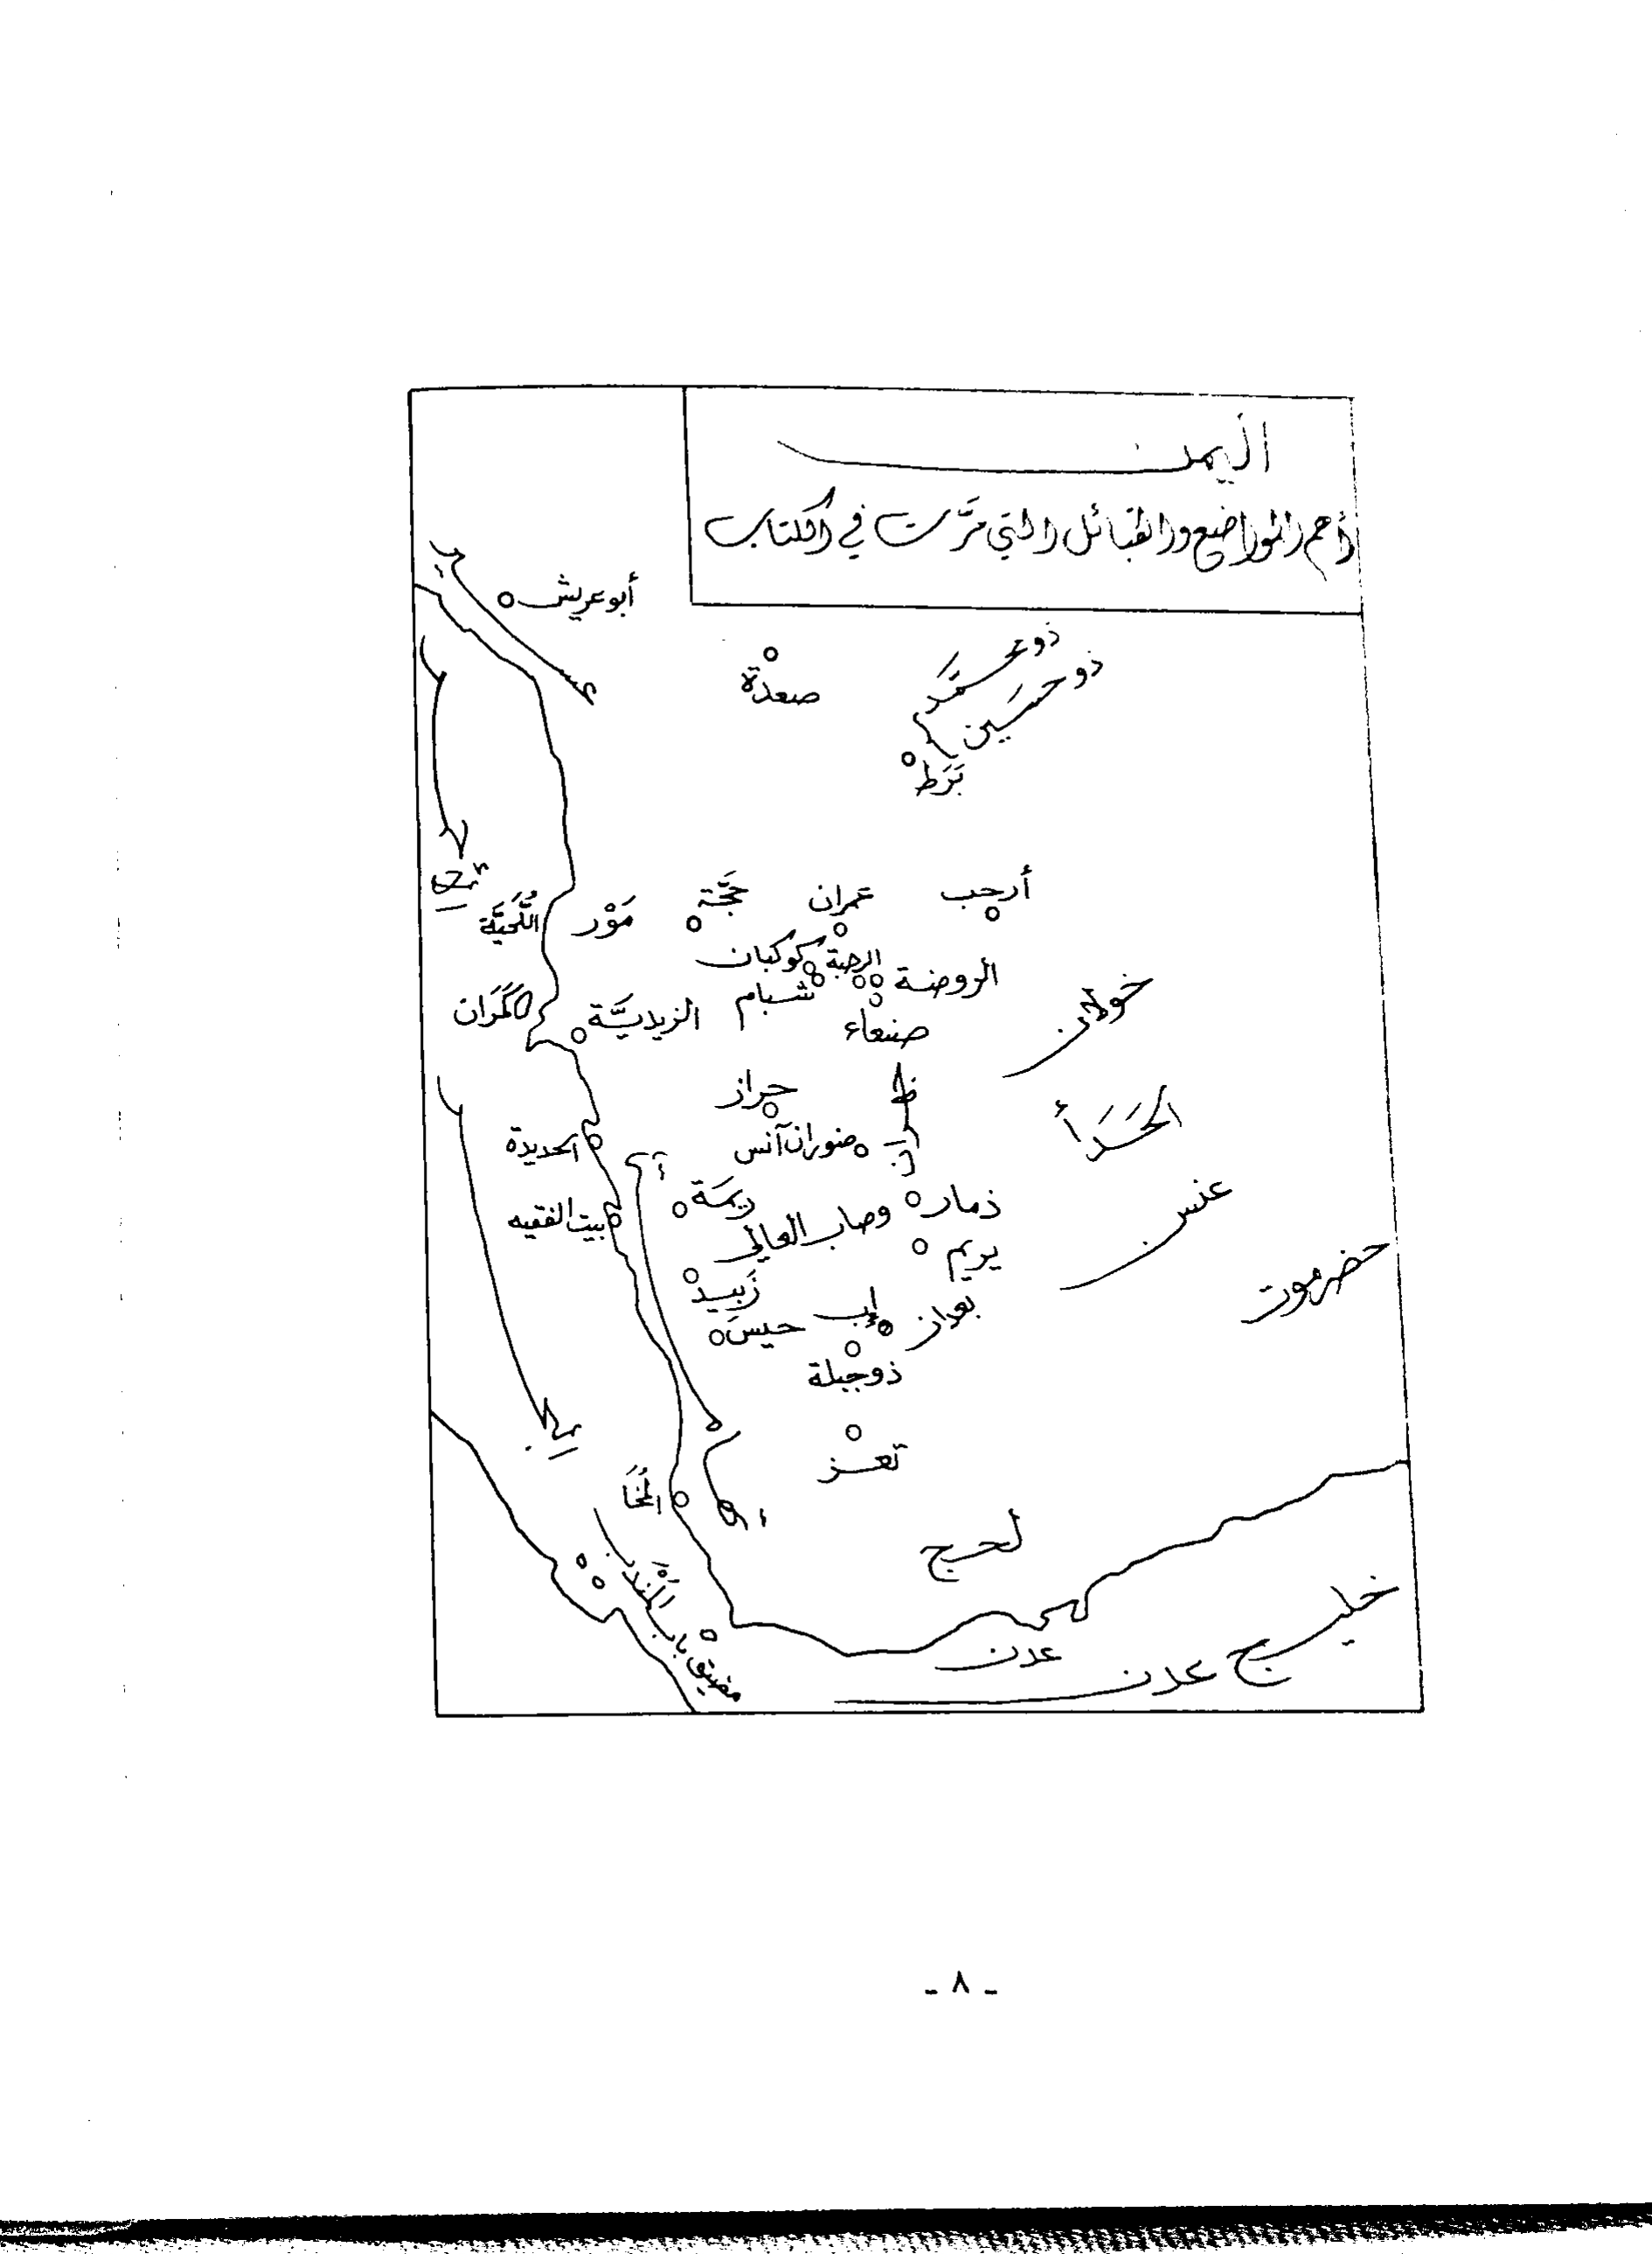 اليمن
أهم المواضع والقبائل التي مرَّت في الكتاب
أبو عريش
عسير
صعدة
ذو محمَّد
ذو حسَين
بَرَط
البحر
أرحب
عمران
حَجَّة
مَوْر
اللُّحَيَّة
كوكبان
الرحبة
الروضنة
شبام
الزيديَّة
كَمَرَان
صنعاء
خولان
حراز
الحَدَأ
ضوران آنس
الحديدة
ريمَة
ذمار
عنس
وصاب العالي
بيت الفقيه
يريم
حضرموت
زَبيد
إب
بعدان
حيسَ
ذو جبلة
تعز
المُخَا
لحج
مضيق باب المَنْدب
عدن
خليج عدن
- ٨ -